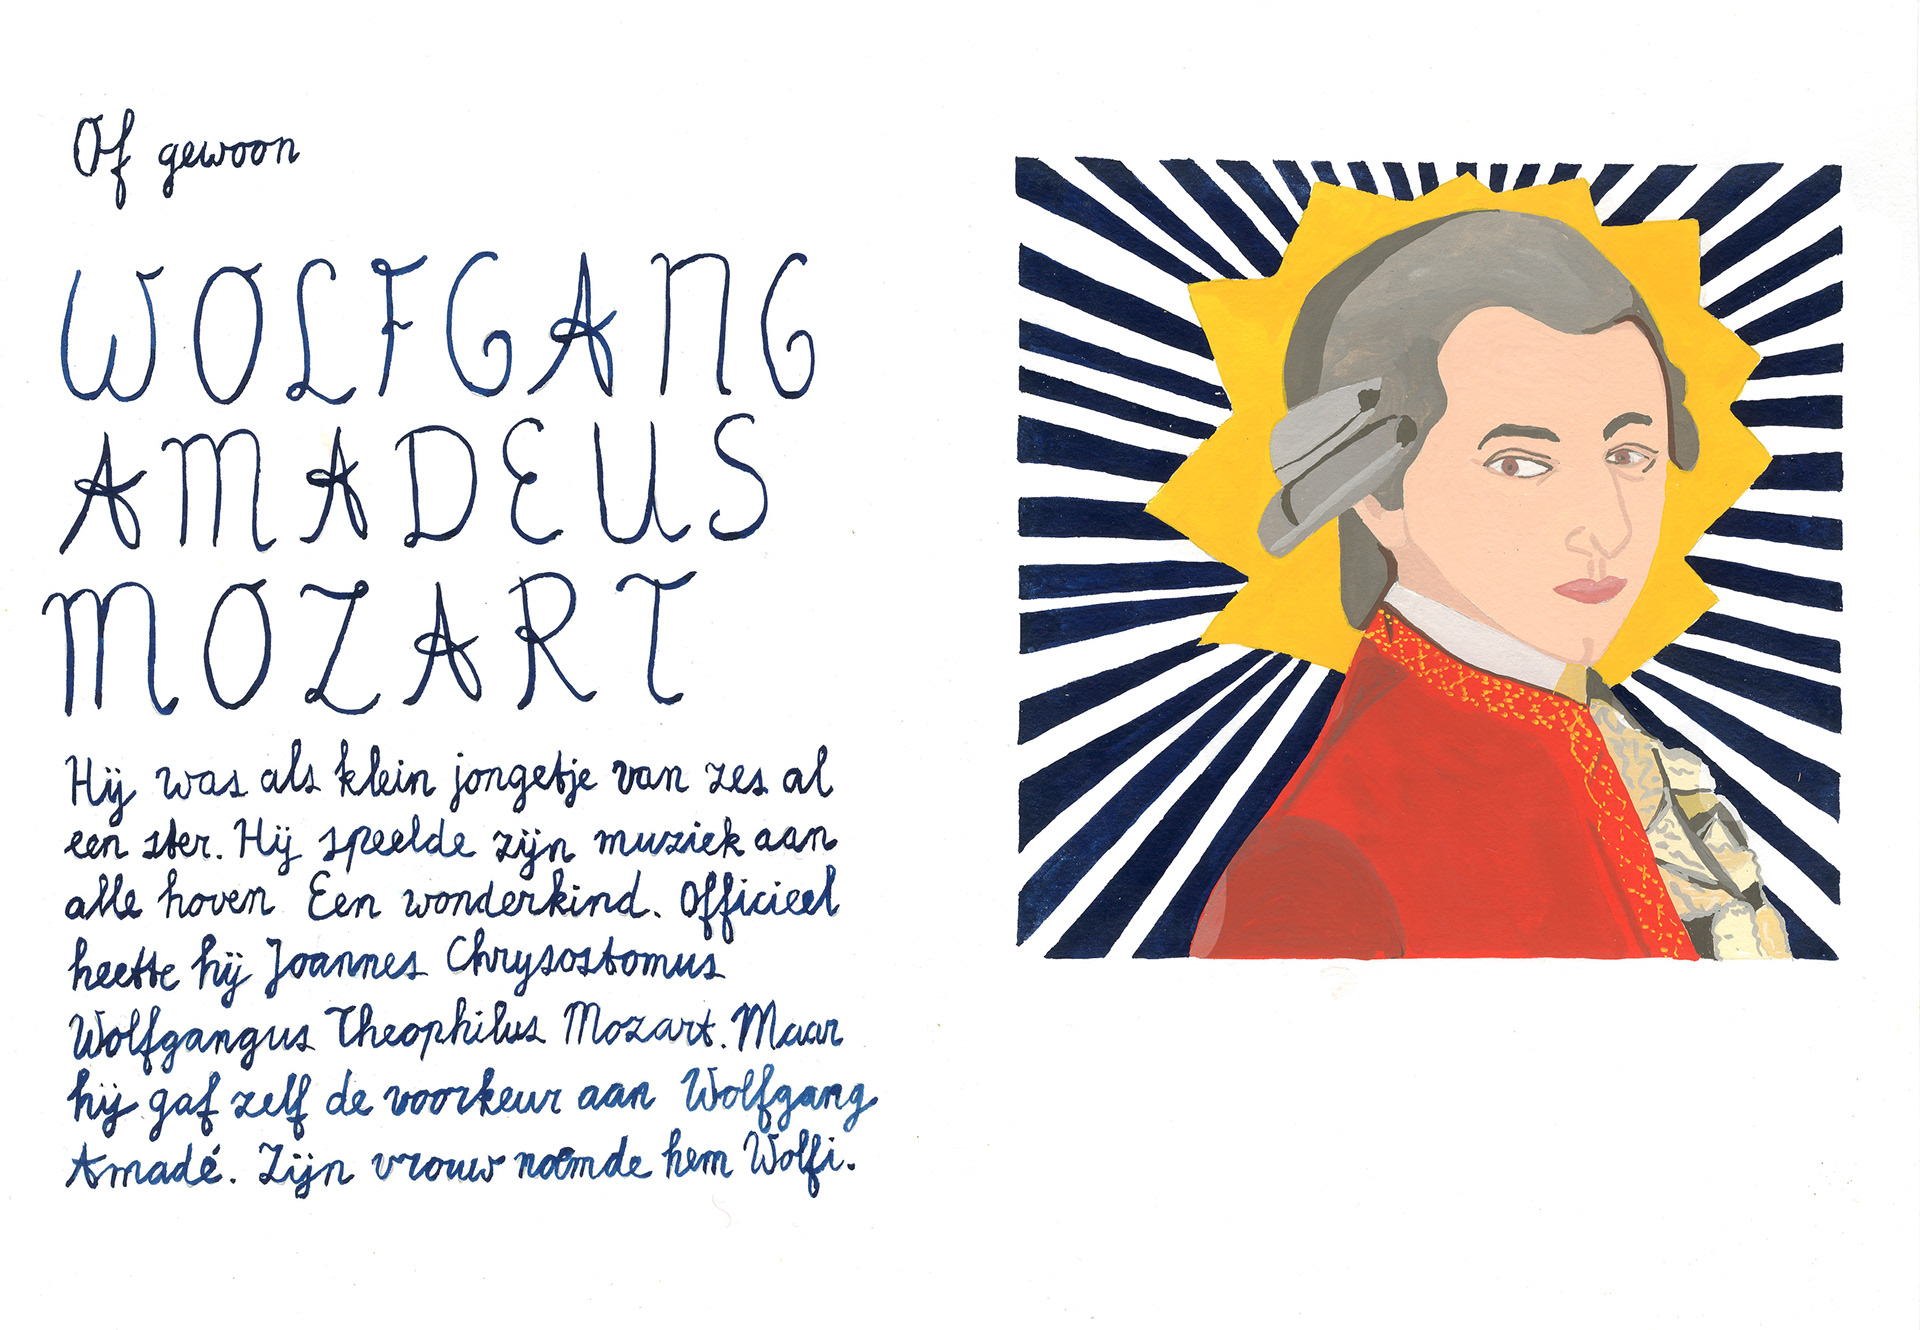 Of gewoon
WOLFGANG
AMADEUS
MOZART
Hij was als klein jongetje van zes al
een ster. Hij speelde zijn muziek aan
alle hoven Een wonderkind. Officieel
heette hij Joannes Chrysostomus
Wolfgangus Theophilus Mozart. Maar
hij gaf zelf de voorkeur aan Wolfgang
Amadé. Zijn vrouw noemde hem Wolfi.